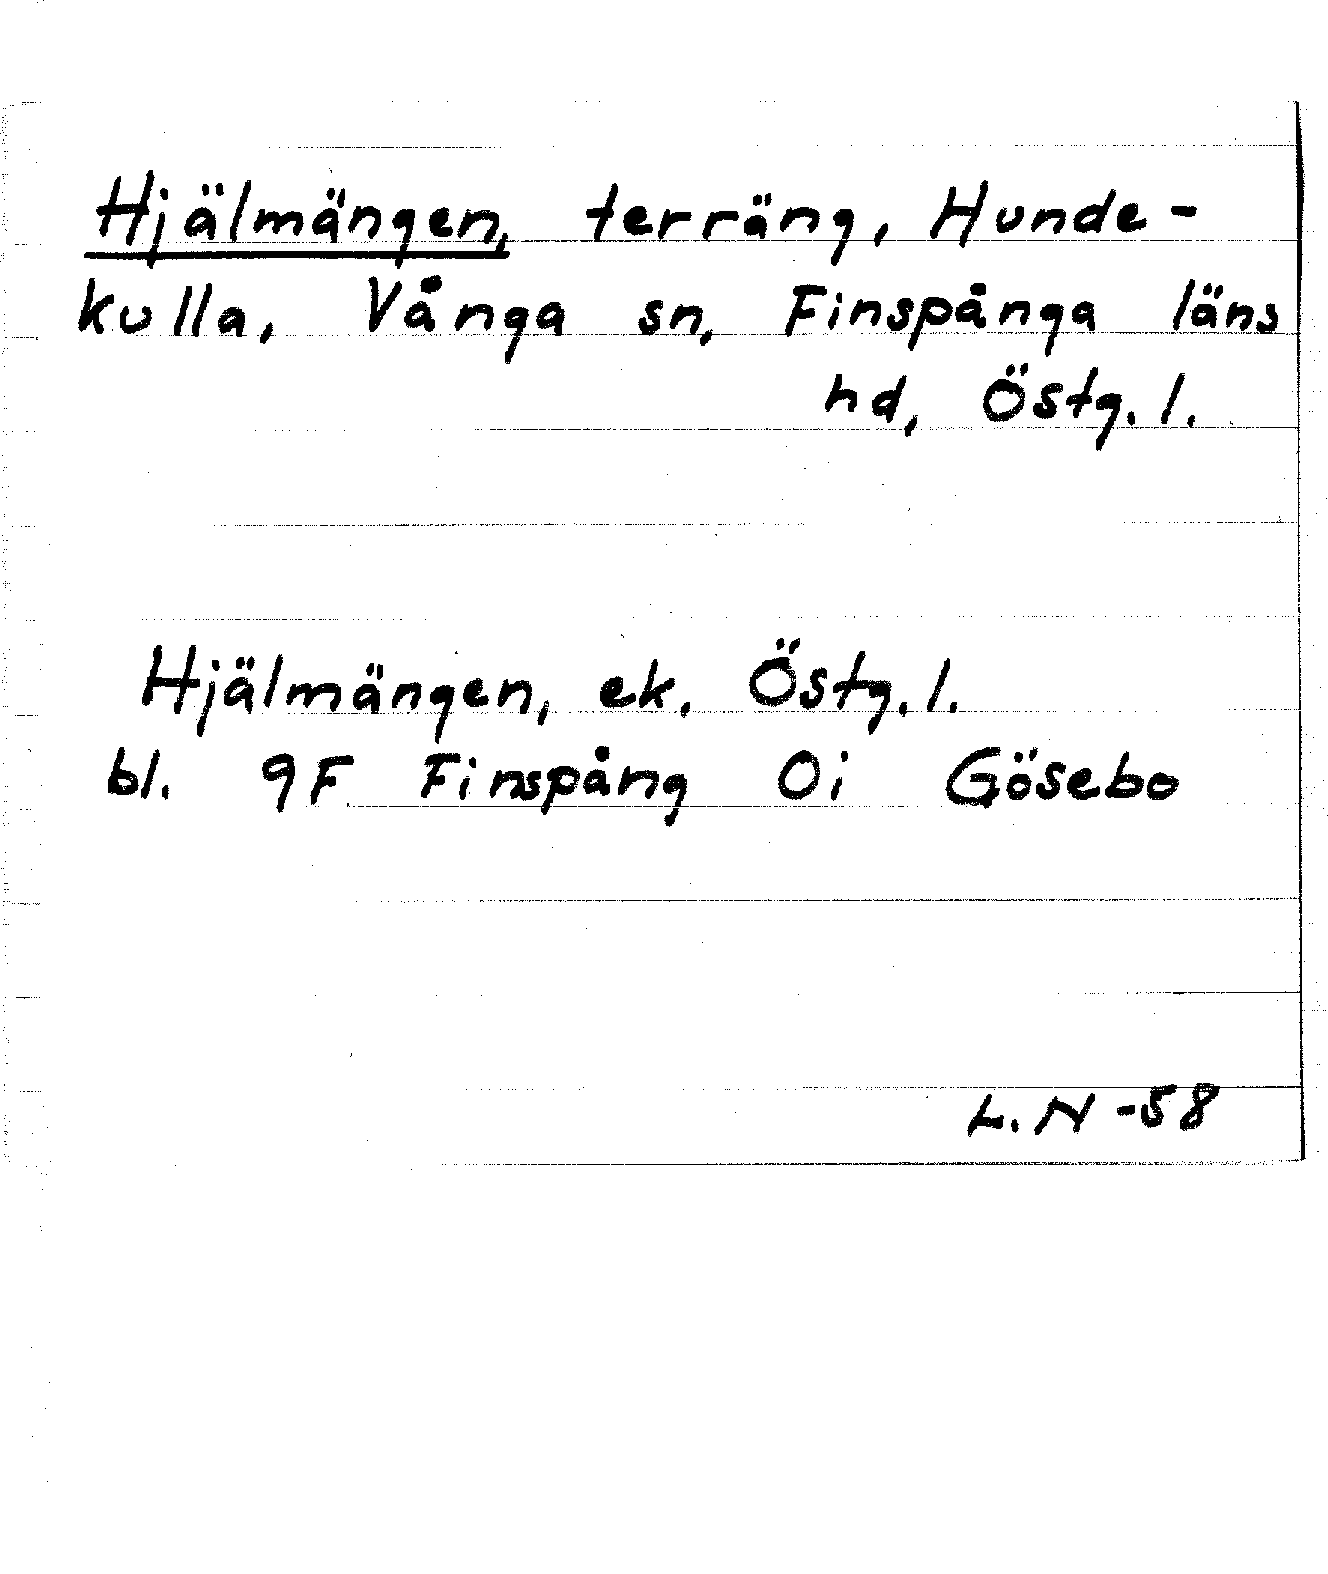 Hjälmängen, terräng, Hunde-
kulla, Vånga sn, Finspånga läns
hd, Östg. l.
Hjälmängen, ek. Östg. l.
bl. 9F Finspång 0i Gösebo
L. N -58